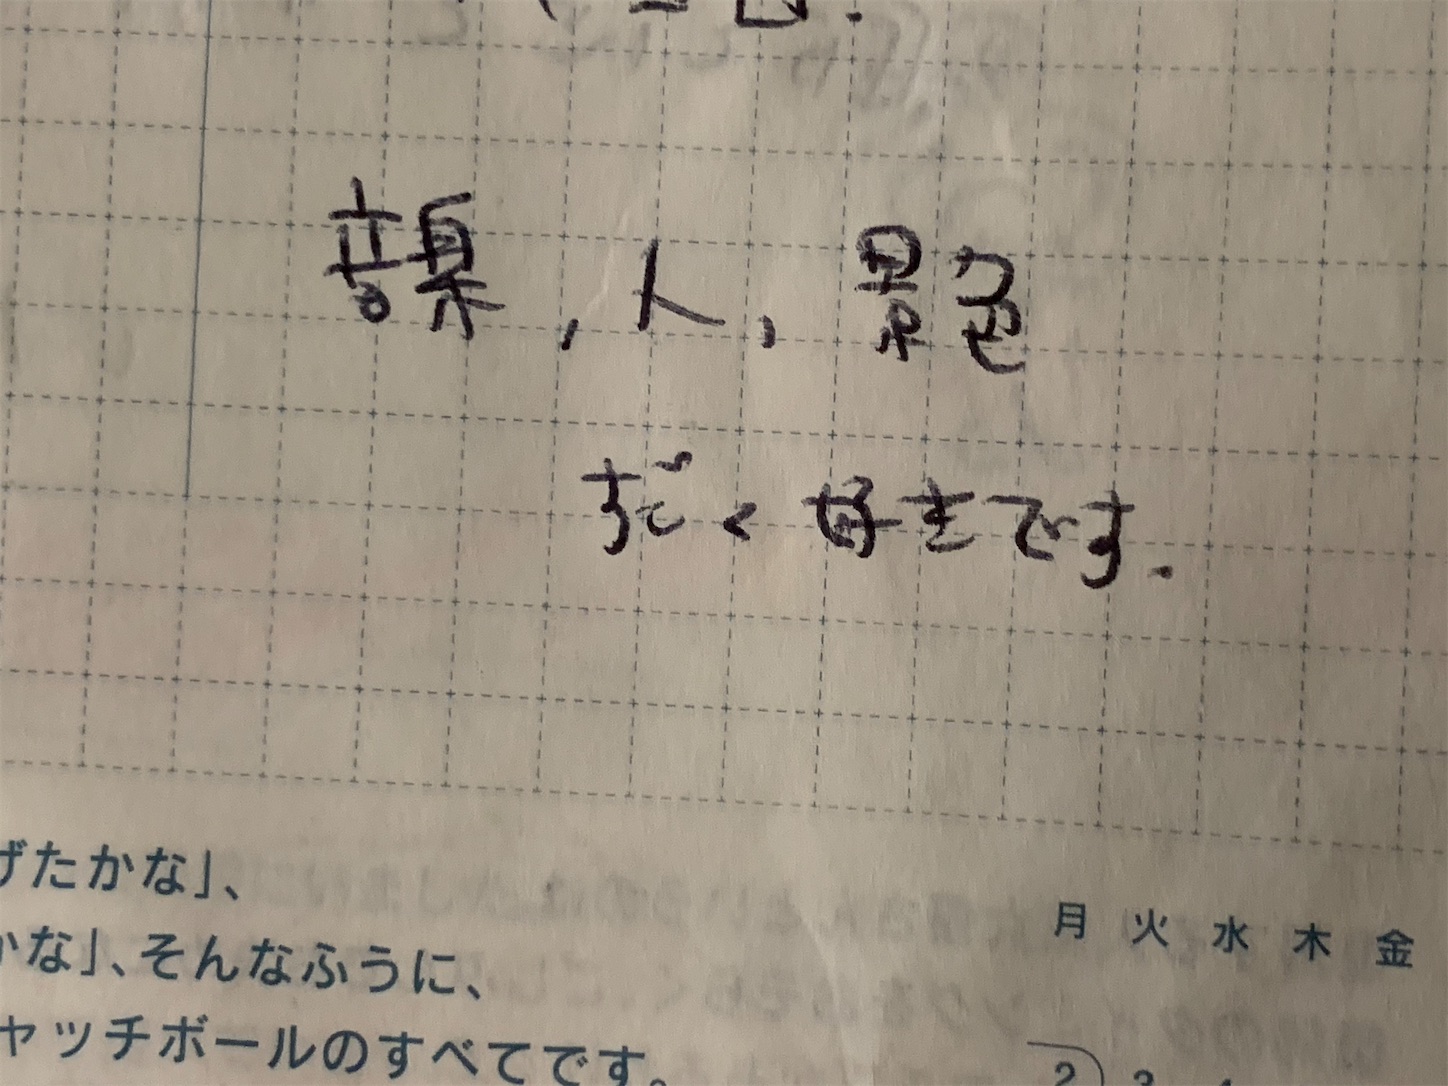 音楽,人,景色
すごく好きです.
げたかな」、
かな」、そんなふうに、
ャッチボールのすべてです。
月 火 水 木 金
2 3